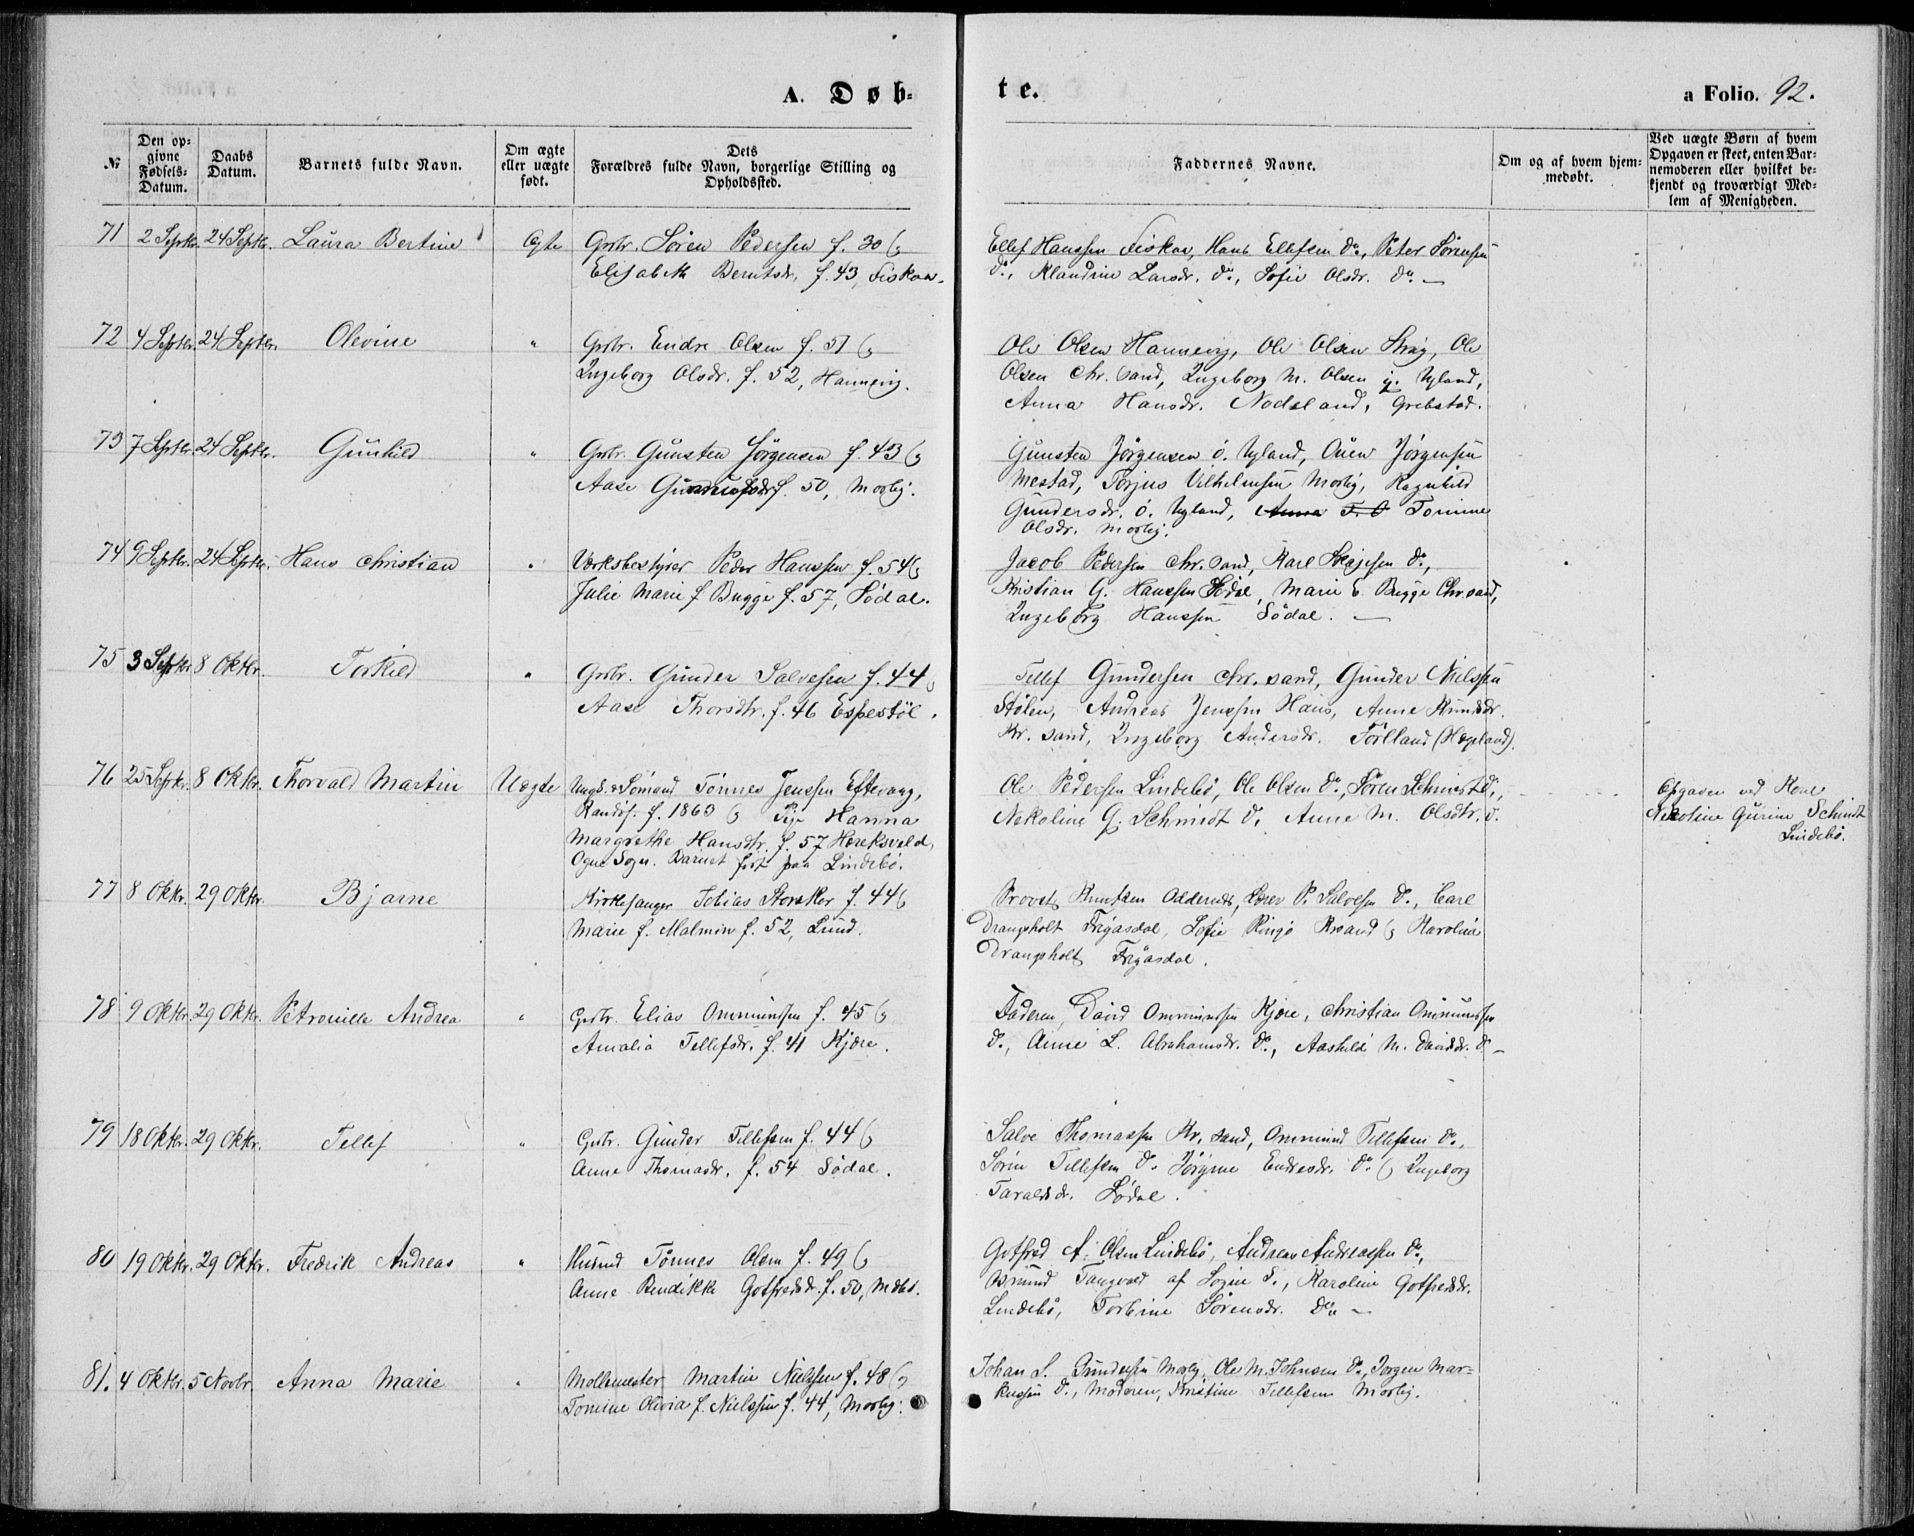 A. Døb-
te.
a Folio. 92.
№
Den op-
givne
Fødsels-
Datum.
Daabs
Datum.
Barnets fulde Navn.
Om ægte
eller uægte
født.
Dets
Forældres fulde Navn, borgerlige Stilling og
Opholdssted.
Faddernes Navne.
Om og af hvem hjem-
medøbt.
Ved uægte Børn af hvem
Opgaven er skeet, enten Bar-
nemoderen eller hvilket be-
kjendt og troværdigt Med-
lem af Menigheden.
71 2 Septbr. 24 Septbr. Laura Bertine Ægte Grbr. Søren Pedersen f. 30 &
Elisabeth Berntsdr. f. 43, Fiskaa.
Ellef Hanssen Fiskaa, Hans Ellefsen Do, Peter Sørensen
Do, Klandine Larsdr. Do, Sofie Olsdr. Do. —
72 4 Septbr. 24 Septbr. Olevine " Grbr. Endre Olsen f. 51 &
Ingeborg Olsdr. f. 52, Hannevig.
Ole Olsen Hannevig, Ole Olsen Strøg, Ole
Olsen Chr.sand, Ingeborg M. Olsen y. Ugland,
Anna Hansdr. Nodeland, Grebstad.
73 7 Septbr. 24 Septbr. Gunhild " Grbr. Gunsten Jørgensen f. 43 &
Aase f. 50, Mosby.
Gunsten Jørgensen ø. Ugland, Ouen Jørgensen
Mestad, Torjus Vilhelmsen Mosby, Ragnhild
Gundersdr. ø. Ugland, Anna T. O Tomine
Olsdr. Mosby.
74 9 Septbr. 24 Septbr. Hans Christian " Værksbestyrer Peder Hanssen f. 54 &
Julie Marie f Bugge f. 57, Sødal.
Jacob Pedersen Chr.sand, Karl Do,
Kristian G. Hanssen Sødal, Marie E Bugge Chr.sand,
Ingeborg Hanssen Sødal. —
75 3 Septbr. 8 Oktbr. Torkild " Grbr. Gunder Salvesen f. 44 &
Aase Thorsdtr. f. 46 Espestøl.
Tellef Gundersen Chr.sand, Gunder Nielssen
Stølen, Andreas Jenssen Haus, Anne Knudsdr.
Kr.sand, Ingeborg Andersdr.Førlland (Hægeland).
76 25 Septbr. 8 Oktbr. Thorvald Martin Uægte Ungk. & Sømand Tønnes Jenssen Eftevaag,
Randøs. f. 1863 & Pige Hanna
Margrethe Hansdtr. f. 57 Høreksveld,
Ogne Sogn. Barnet født paa Lindebø.
Ole Pedersen Lindebø, Ole Olsen Do, Søren Schmidt Do,
Nekoline G. Schmidt Do, Anne M. Olsdtr. Do.
Opgaven ved Kone
Nekoline Gurine Schmidt
Lindebø.
77 8 Oktbr. 29 Oktbr. Bjarne Kirkesanger Tobias Storaker f. 44 &
Marie f. Malmin f. 52, Lund.
Provst Knutsen Oddernes, Lærer P. Salvesen Do, Carl
Drangsholt Frigasdal, Sofie Ringø Krsand & Karoline
Drangsholt Frigasdal.
78 9 Oktbr. 29 Oktbr. Petronille Andrea " Grbr. Elias Ommundsen f. 45 &
Amalia Tellefsdr. f. 41 Kjøre.
Faderen, David Ommundsen Kjøre, Christian Ommundsen
Do, Anne L. Abrahamsdr. Do, Aashild M. Davidsdr. Do —
79 18 Oktbr. 29 Oktbr. Tellef " Grbr. Gunder Tellefsen f. 44 &
Anne Thomasdr. f. 54 Sødal.
Salve Thomassen Kr.sand, Ommund Tellefsen Do.
Søren Tellefsen Do. Jørgine Endresdr. Do. & Ingeborg
Taraldsdr. Sødal.
80 19 Oktbr. 29 Oktbr. Fredrik Andreas " Husmd Tønnes Olsen f. 49 &
Anne Bendikke Gotfredsdr. f. 50,
Gotfred A. Olsen Lindebø, Andreas Andreassen Do,
Osmund Tangvald af Sogne S., Karoline Gotfredsdr.
Lindebø, Torbine Sørensdr. Do —
81. 4 Oktbr. 5 Novbr. Anna Marie " Møllemester Martin Nielssen f. 48 &
Tomine Olivia f. Nielssen f. 44, Mosby.
Johan S. Gundersen Mosby, Ole M. Johnsen Do, Jørgen Mar-
kussen Do, Moderen, Kristine Tellefsen Mosby.